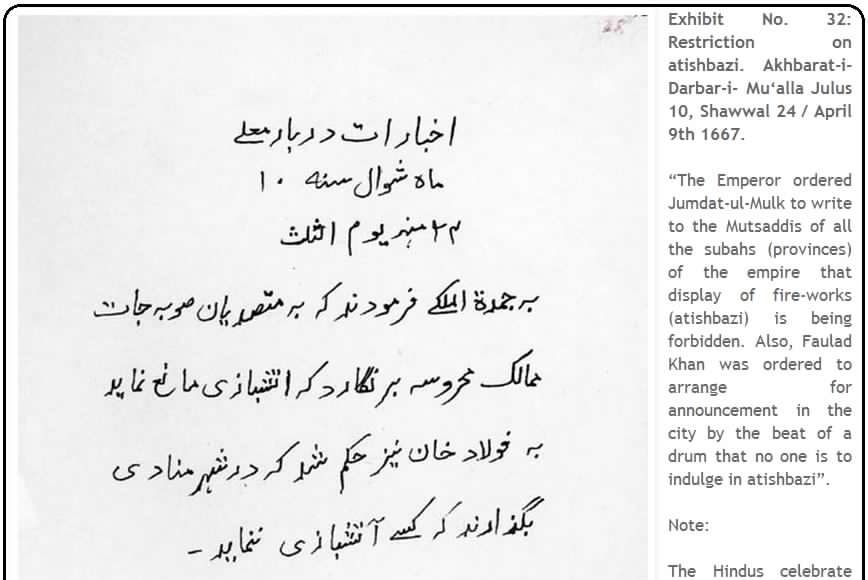 اخبارات دربار معلے
ماه شوال سنه ۱۰
۲۴ شهر یوم الثلث
به جمدة الملکے فرمودند که به متصدیان صوبه جات
ممالک محروسه بر نگارد که اتشبازی مانع نماید
به فولاد خان نیز حکم شد که در شهر منادی
بگذارند که کسے آتشبازی ننماید -
Exhibit No. 32:
Restriction on
atishbazi. Akhbarat-i-
Darbar-i- Mu‘alla Julus
10, Shawwal 24 / April
9th 1667.
“The Emperor ordered
Jumdat-ul-Mulk to write
to the Mutsaddis of all
the subahs (provinces)
of the empire that
display of fire-works
(atishbazi) is being
forbidden. Also, Faulad
Khan was ordered to
arrange for
announcement in the
city by the beat of a
drum that no one is to
indulge in atishbazi”.
Note:
The Hindus celebrate